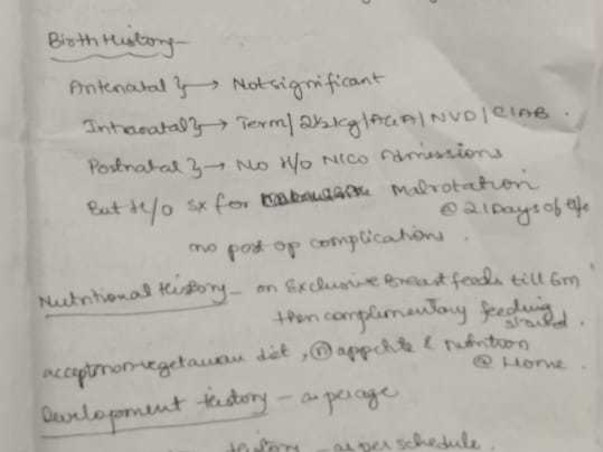 Birth History -
Antenatal } → Not significant
Intranatal } → Term / 2½kg / AGA / NVD / CIAB .
Postnatal } → No H/o NICO Admissions
But H/o Sx for Malrotation
@ 21 Days of life
no post op complications .
Nutritional History - on Exclusive Breast feeds till 6m
then complimentary feeding
started .
accept non vegetarian diet , (n) appetite & nutrition
@ Home .
Development History - as per age
History - as per schedule .